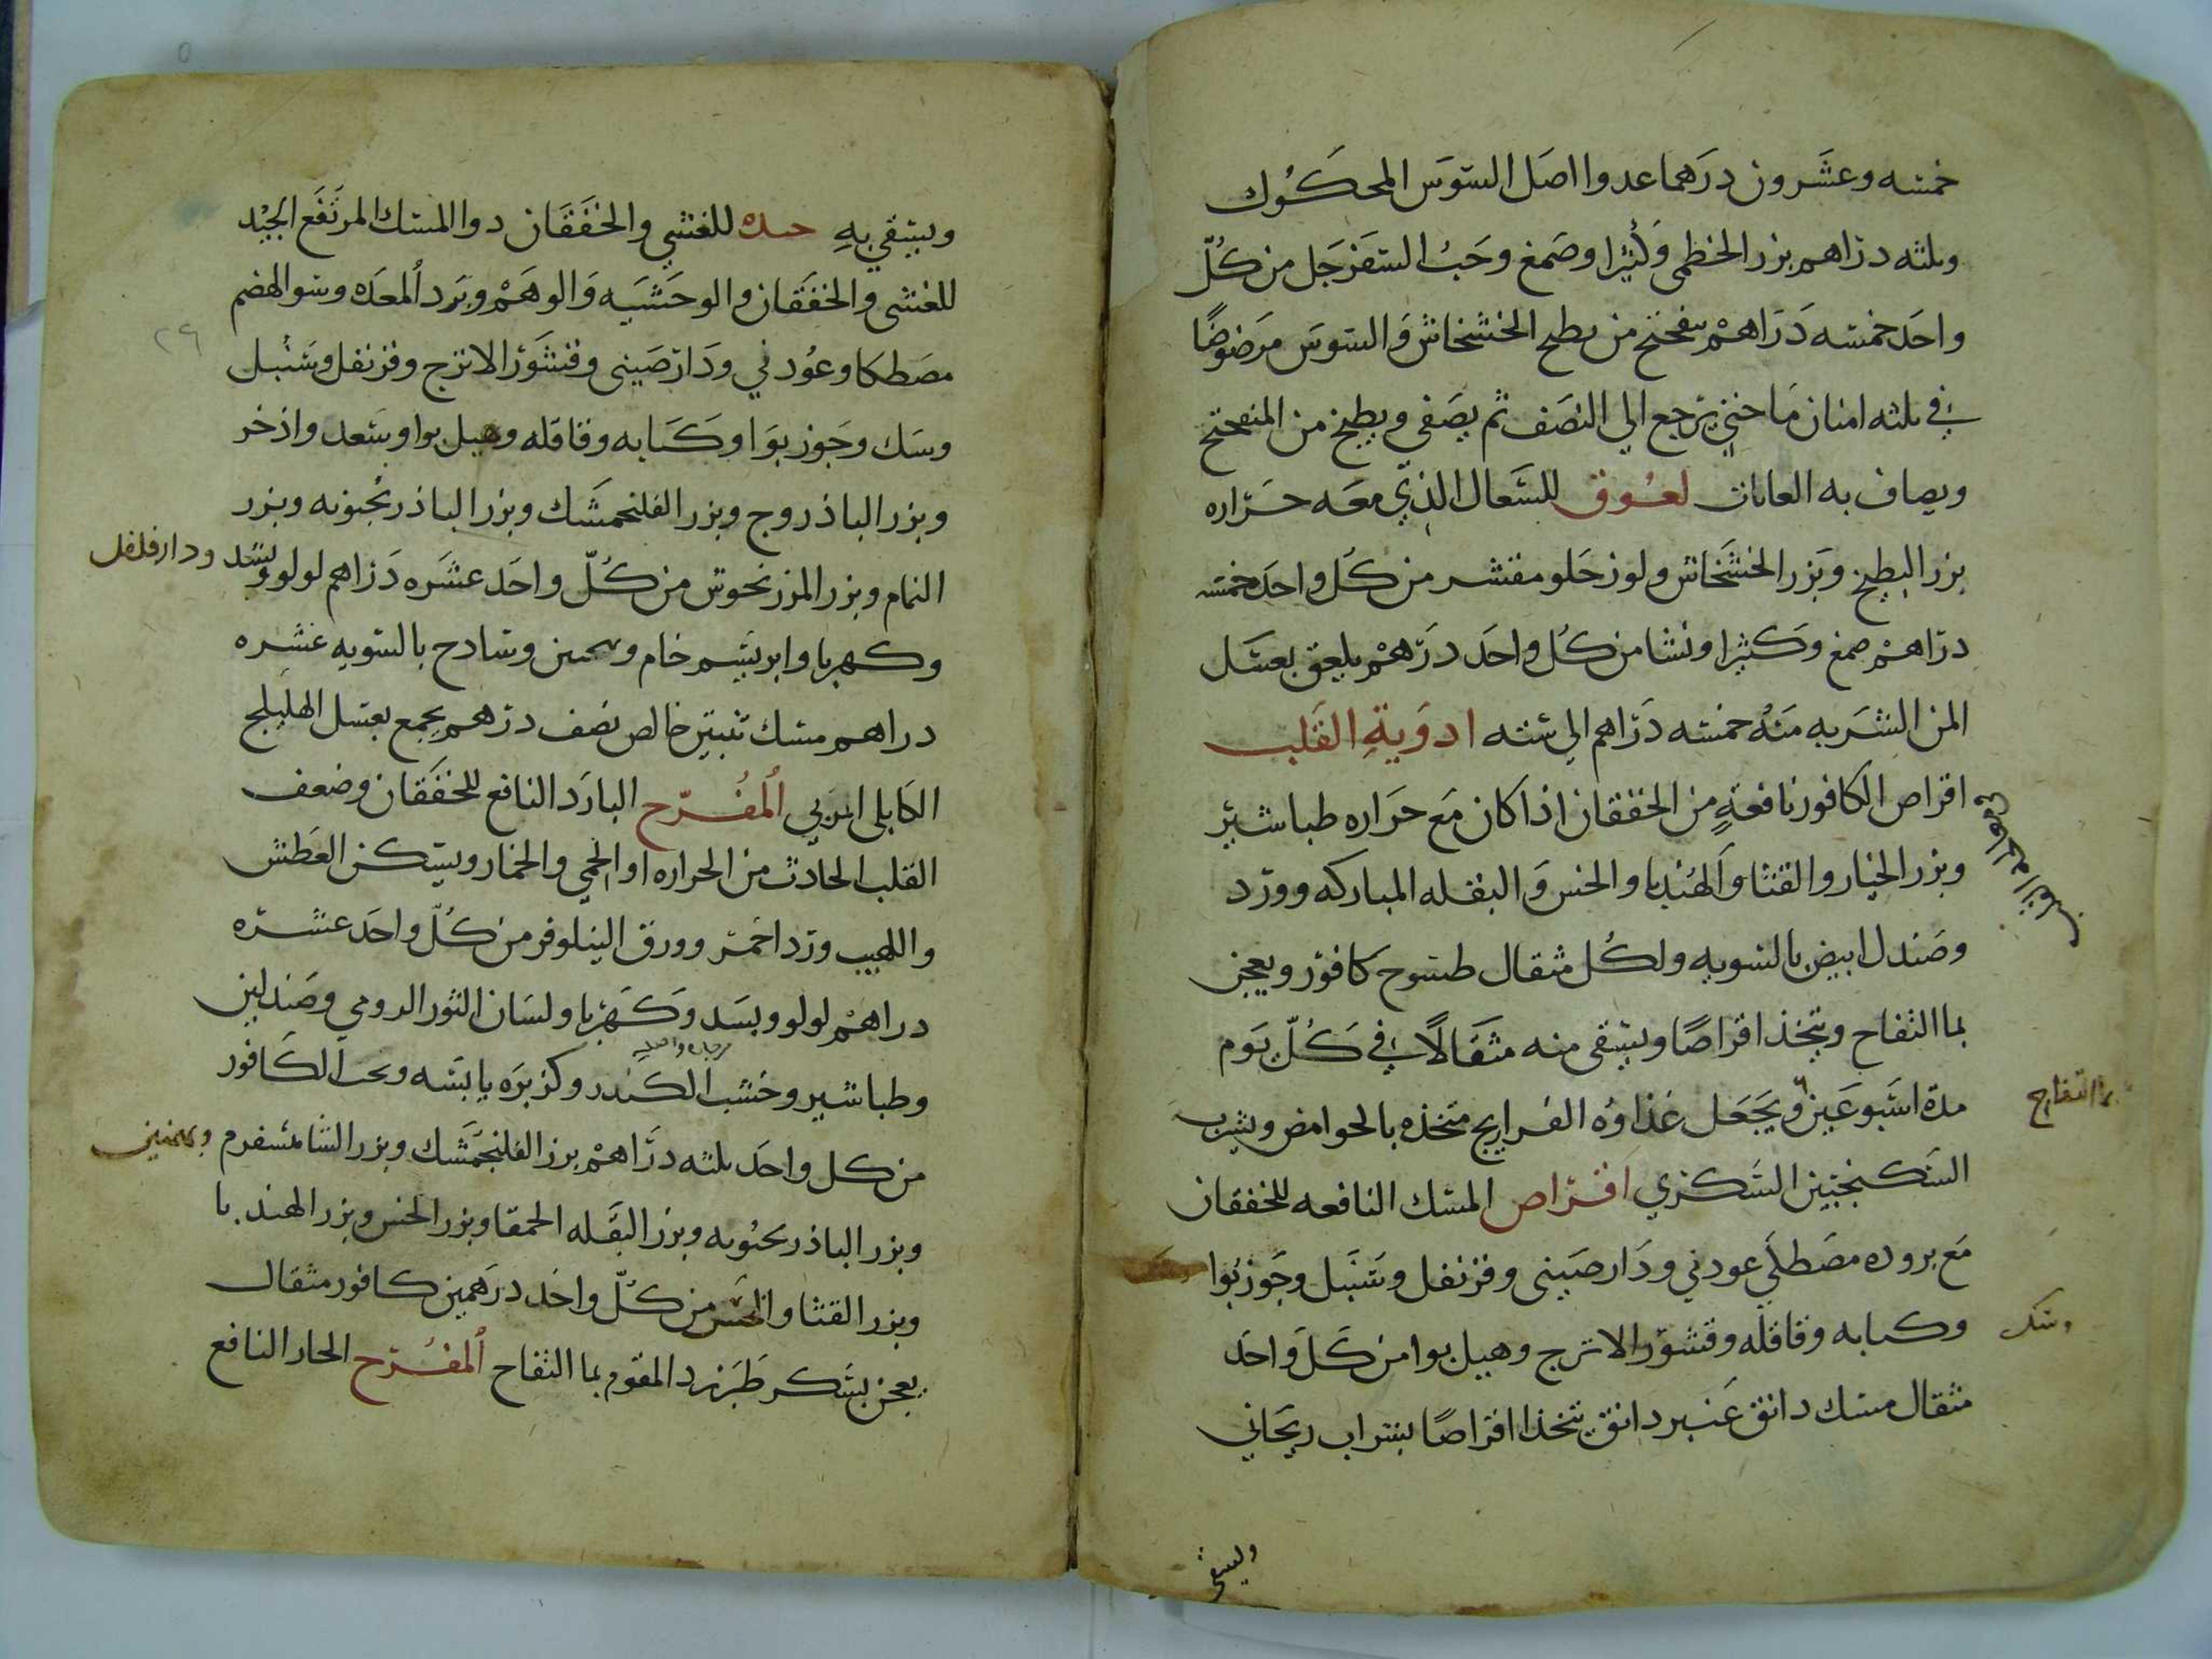 خمسه وعشرون درهما عدوا اصل السوس المحكوك
وثلثه دراهم بزر الخطمى وكثيرا وصمغ وحب السفرجل من كل
واحد خمسه دراهم ميفختج من بطيخ الخشخاش والسوس مرضوضا
في ثلثه امنان ما حتي يرجع الي النصف ثم يصفى ويطبخ من الميفختج
ويضاف به العابات لعوق للسعال الذي معه حراره
بزر البطيخ وبزر الخشخاش ولوز حلو مقشر من كل واحد خمسه
دراهم صمغ وكثيرا ونشا من كل واحد درهم يلعق بعسل
المن الشربه منه خمسه دراهم الي سته ادوية القلب
اقراص الكافور نافعة من الخفقان اذا كان مع حراره طباشير
وبزر الخيار والقثا والهندبا والخس والبقله المباركه وورد
وصندل ابيض بالسويه ولكل مثقال طسوج كافور ويعجن
بما التفاح ويتخذ اقراصا ويسقى منه مثقالا في كل يوم
مدة اسبوعين ويجعل غذاوه الفراريج متخذه بالحوامض ويشرب
بما التفاح
السكنجبين السكري اقراص المسك النافعه للخفقان
مع بروده مصطكي عود ني ودارصيني وقرنفل وسنبل وجوزبوا
وكبابه وقاقله وقشور الاترج وهيل بوا من كل واحد
وسك
مثقال مسك دانق عنبر دانق يتخذ اقراصا بشراب ريحاني
وليسقى
ويسقي به للغشي والخفقان دوا المسك المرتفع الجيد
للغشى والخفقان والوحشيه والوهم وبرد المعده وسو الهضم
٢٦
مصطكا وعود ني ودارصينى وقشور الاترج وقرنفل وسنبل
وسك وجوزبوا وكبابه وقاقله وهيل بوا وسعد واذخر
وبزر الباذروج وبزر الفلنجمشك وبزر الباذرنجبويه وبزر
النمام وبزر المرزنجوش من كل واحد عشره دراهم لولو وبسد
ودارفلفل
وكهربا وابريسم خام وبهمنين وسادج بالسويه عشره
دراهم مسك تبتي خالص نصف درهم يجمع بعسل الهليلج
الكابلى المربي المفرح البارد النافع للخفقان وضعف
القلب الحادث من الحراره او الحمي والخمار ويسكن العطش
واللهيب ورد احمر وورق النيلوفر من كل واحد عشره
دراهم لولو وبسد وكهربا ولسان الثور الرومي وصندلين
وطباشير وخشب الكندر وكزبره يابسه وحب الكافور
من كل واحد ثلثه دراهم بزر الفلنجمشك وبزر الشاهسفرم
وبهمنين
وبزر الباذرنجبويه وبزر البقله الحمقا وبزر الخس وبزر الهندبا
وبزر القثا والخس من كل واحد درهمين كافور مثقال
يعجن بسكر طبرزد المقوم بما التفاح المفرح الحار النافع